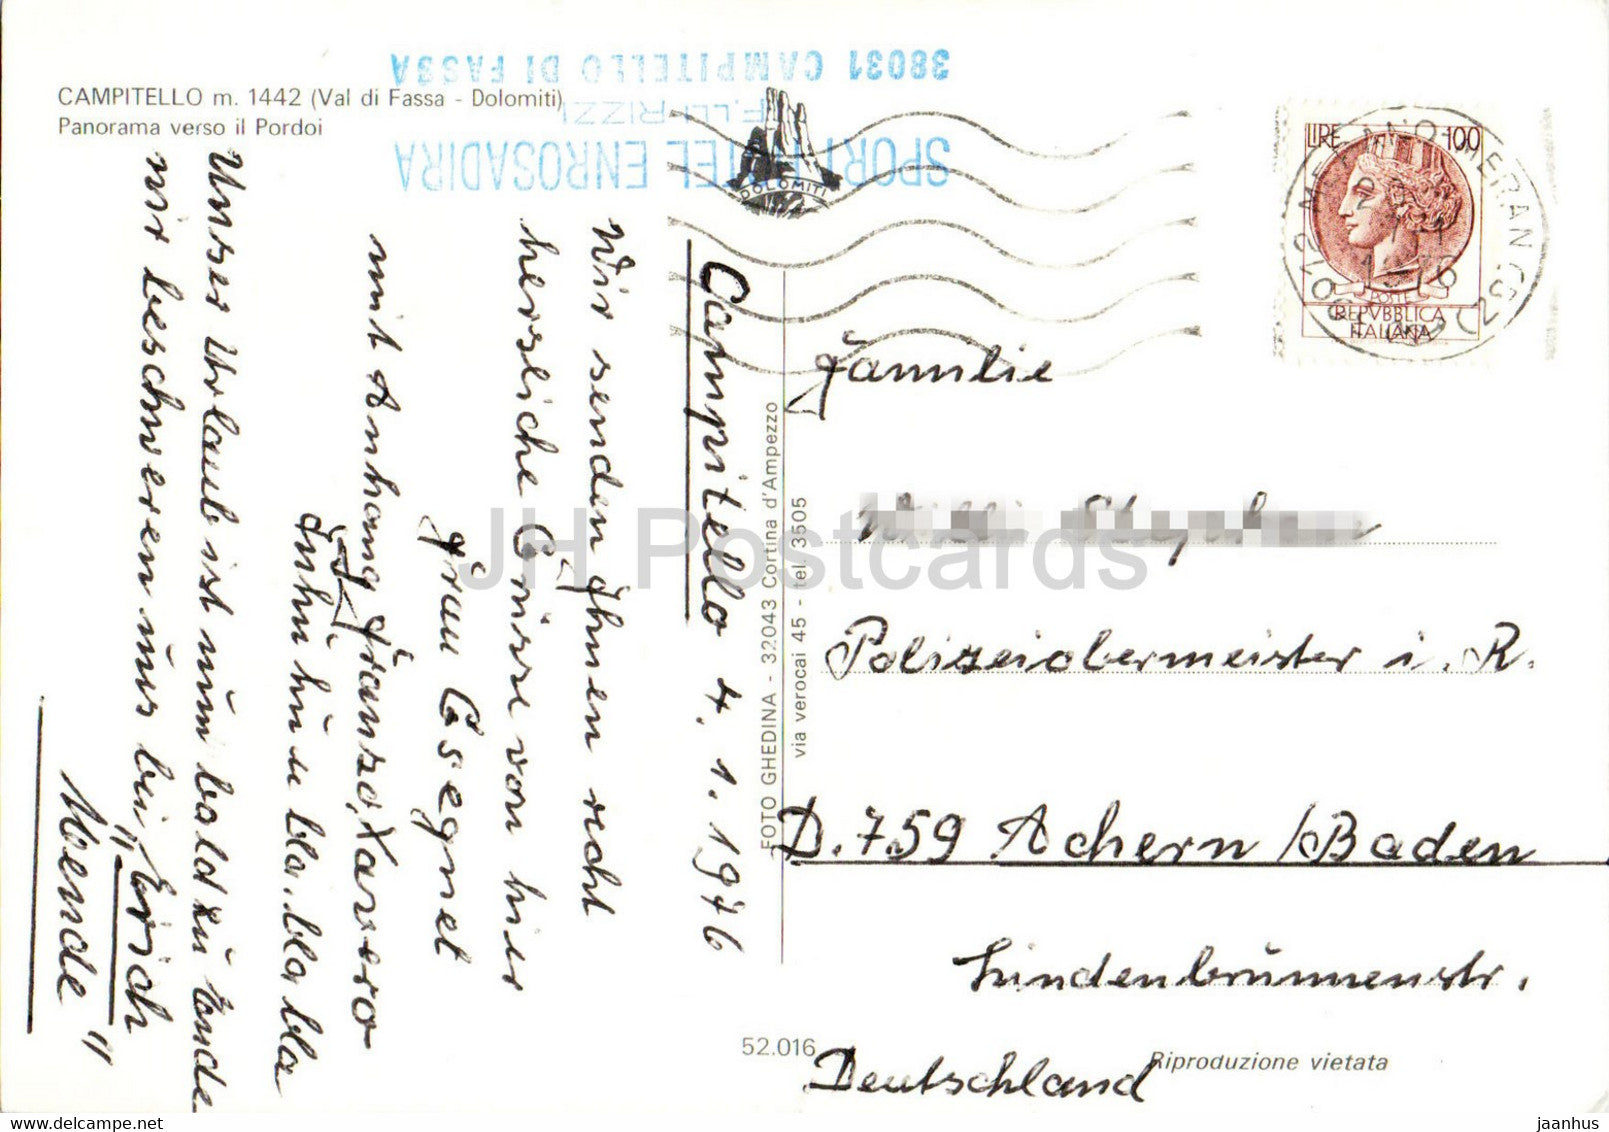 CAMPITELLO m. 1442 (Val di Fassa - Dolomiti)
Panorama verso il Pordoi
SPORT HOTEL ENROSADIRA
F.LLI RIZZI
38031 CAMPITELLO DI FASSA
DOLOMITI
LIRE 100
POSTE
REPVBBLICA
ITALIANA
Campitello 4. 1. 1976
Wir senden Ihnen recht
herzliche Grüsse von hier
Frau
mit Anhang
bla. bla bla
Unser Urlaub ist nun bald zu Ende
wir beschweren uns bei „Erich
Mende"
FOTO GHEDINA - 32043 Cortina d'Ampezzo
via verocai 45 - tel 3505
Familie
Polizeiobermeister i. R.
D. 759 Achern / Baden
Lindenbrunnenstr.
Deutschland
52.016
Riproduzione vietata
JH Postcards
jaanhus
www.delcampe.net